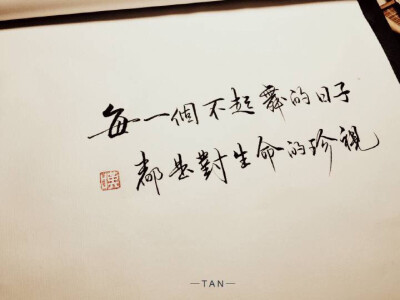 每一個不起舞的日子
都是對生命的珍視
—TAN—